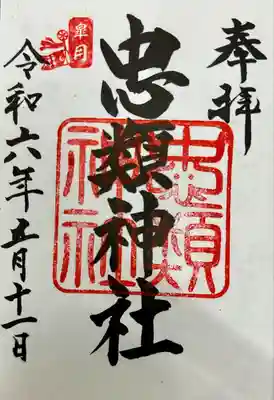 奉拝
忠類神社
忠類神社
皐月
令和六年五月十一日